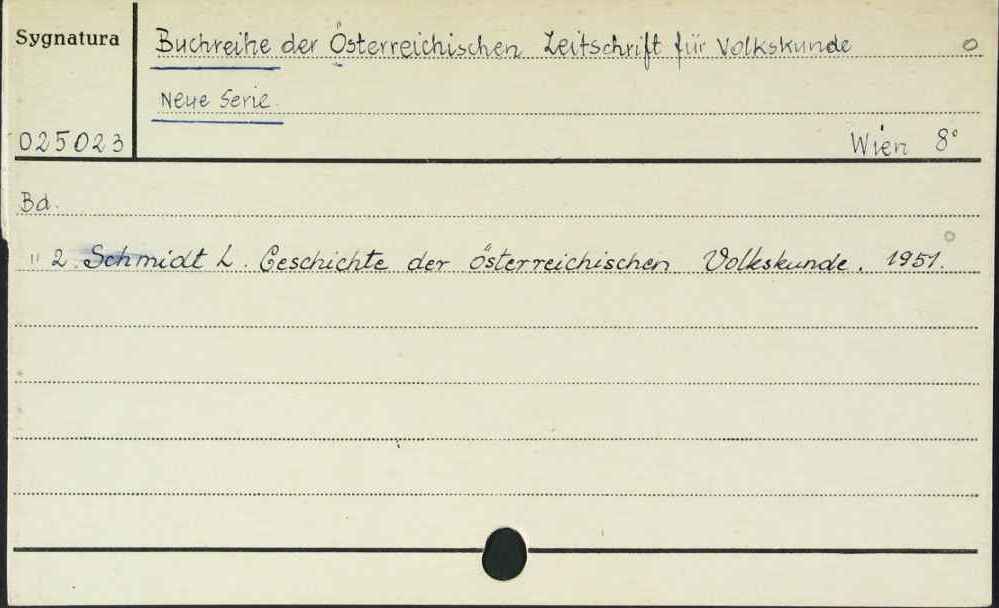 Sygnatura
Buchreihe der Österreichischen Zeitschrift für Volkskunde
Neue Serie.
025023
Wien 8°
Bd.
" 2. Schmidt L. Geschichte der österreichischen Volkskunde. 1951.